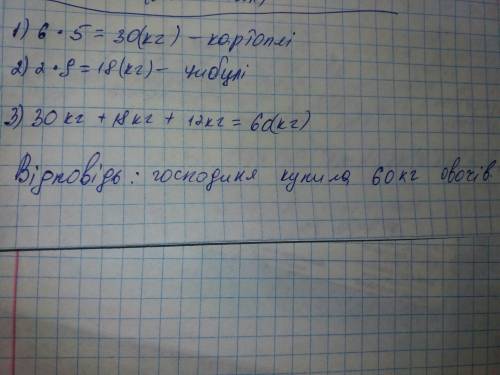 1) 6 · 5 = 30(кг) – картоплі
2) 2 · 9 = 18(кг) – цибулі
3) 30 кг + 18 кг + 12 кг = 60(кг)
Відповідь: господиня купила 60 кг овочів